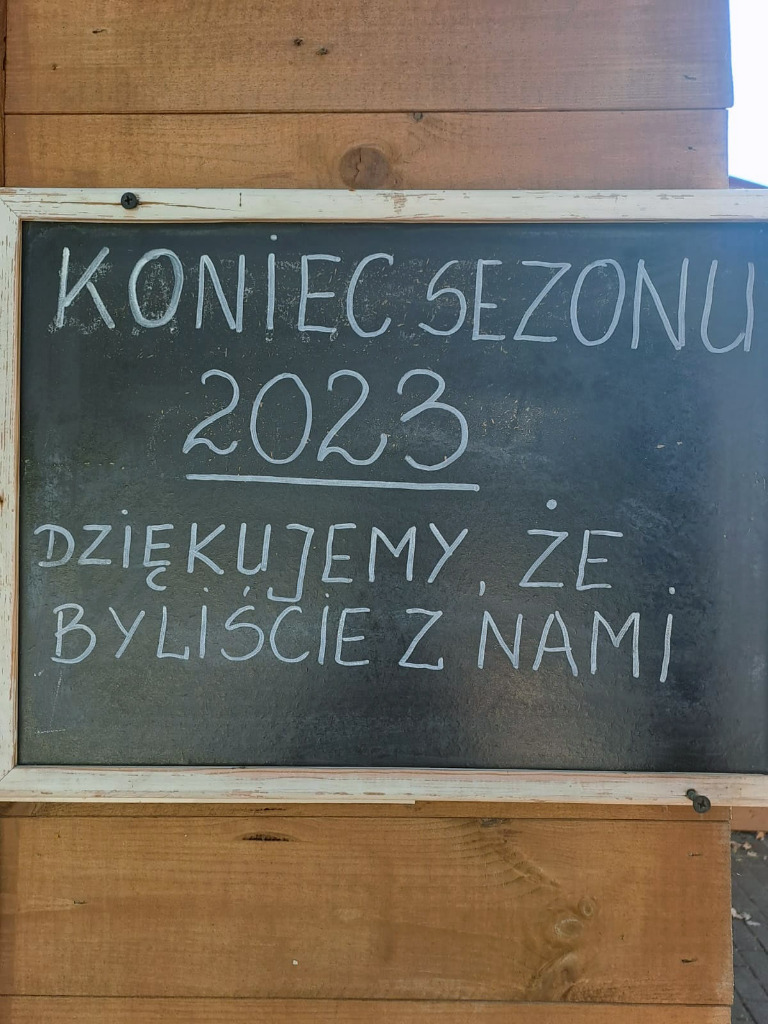 KONIEC SEZONU
2023
DZIĘKUJEMY, ŻE
BYLIŚCIE Z NAMI